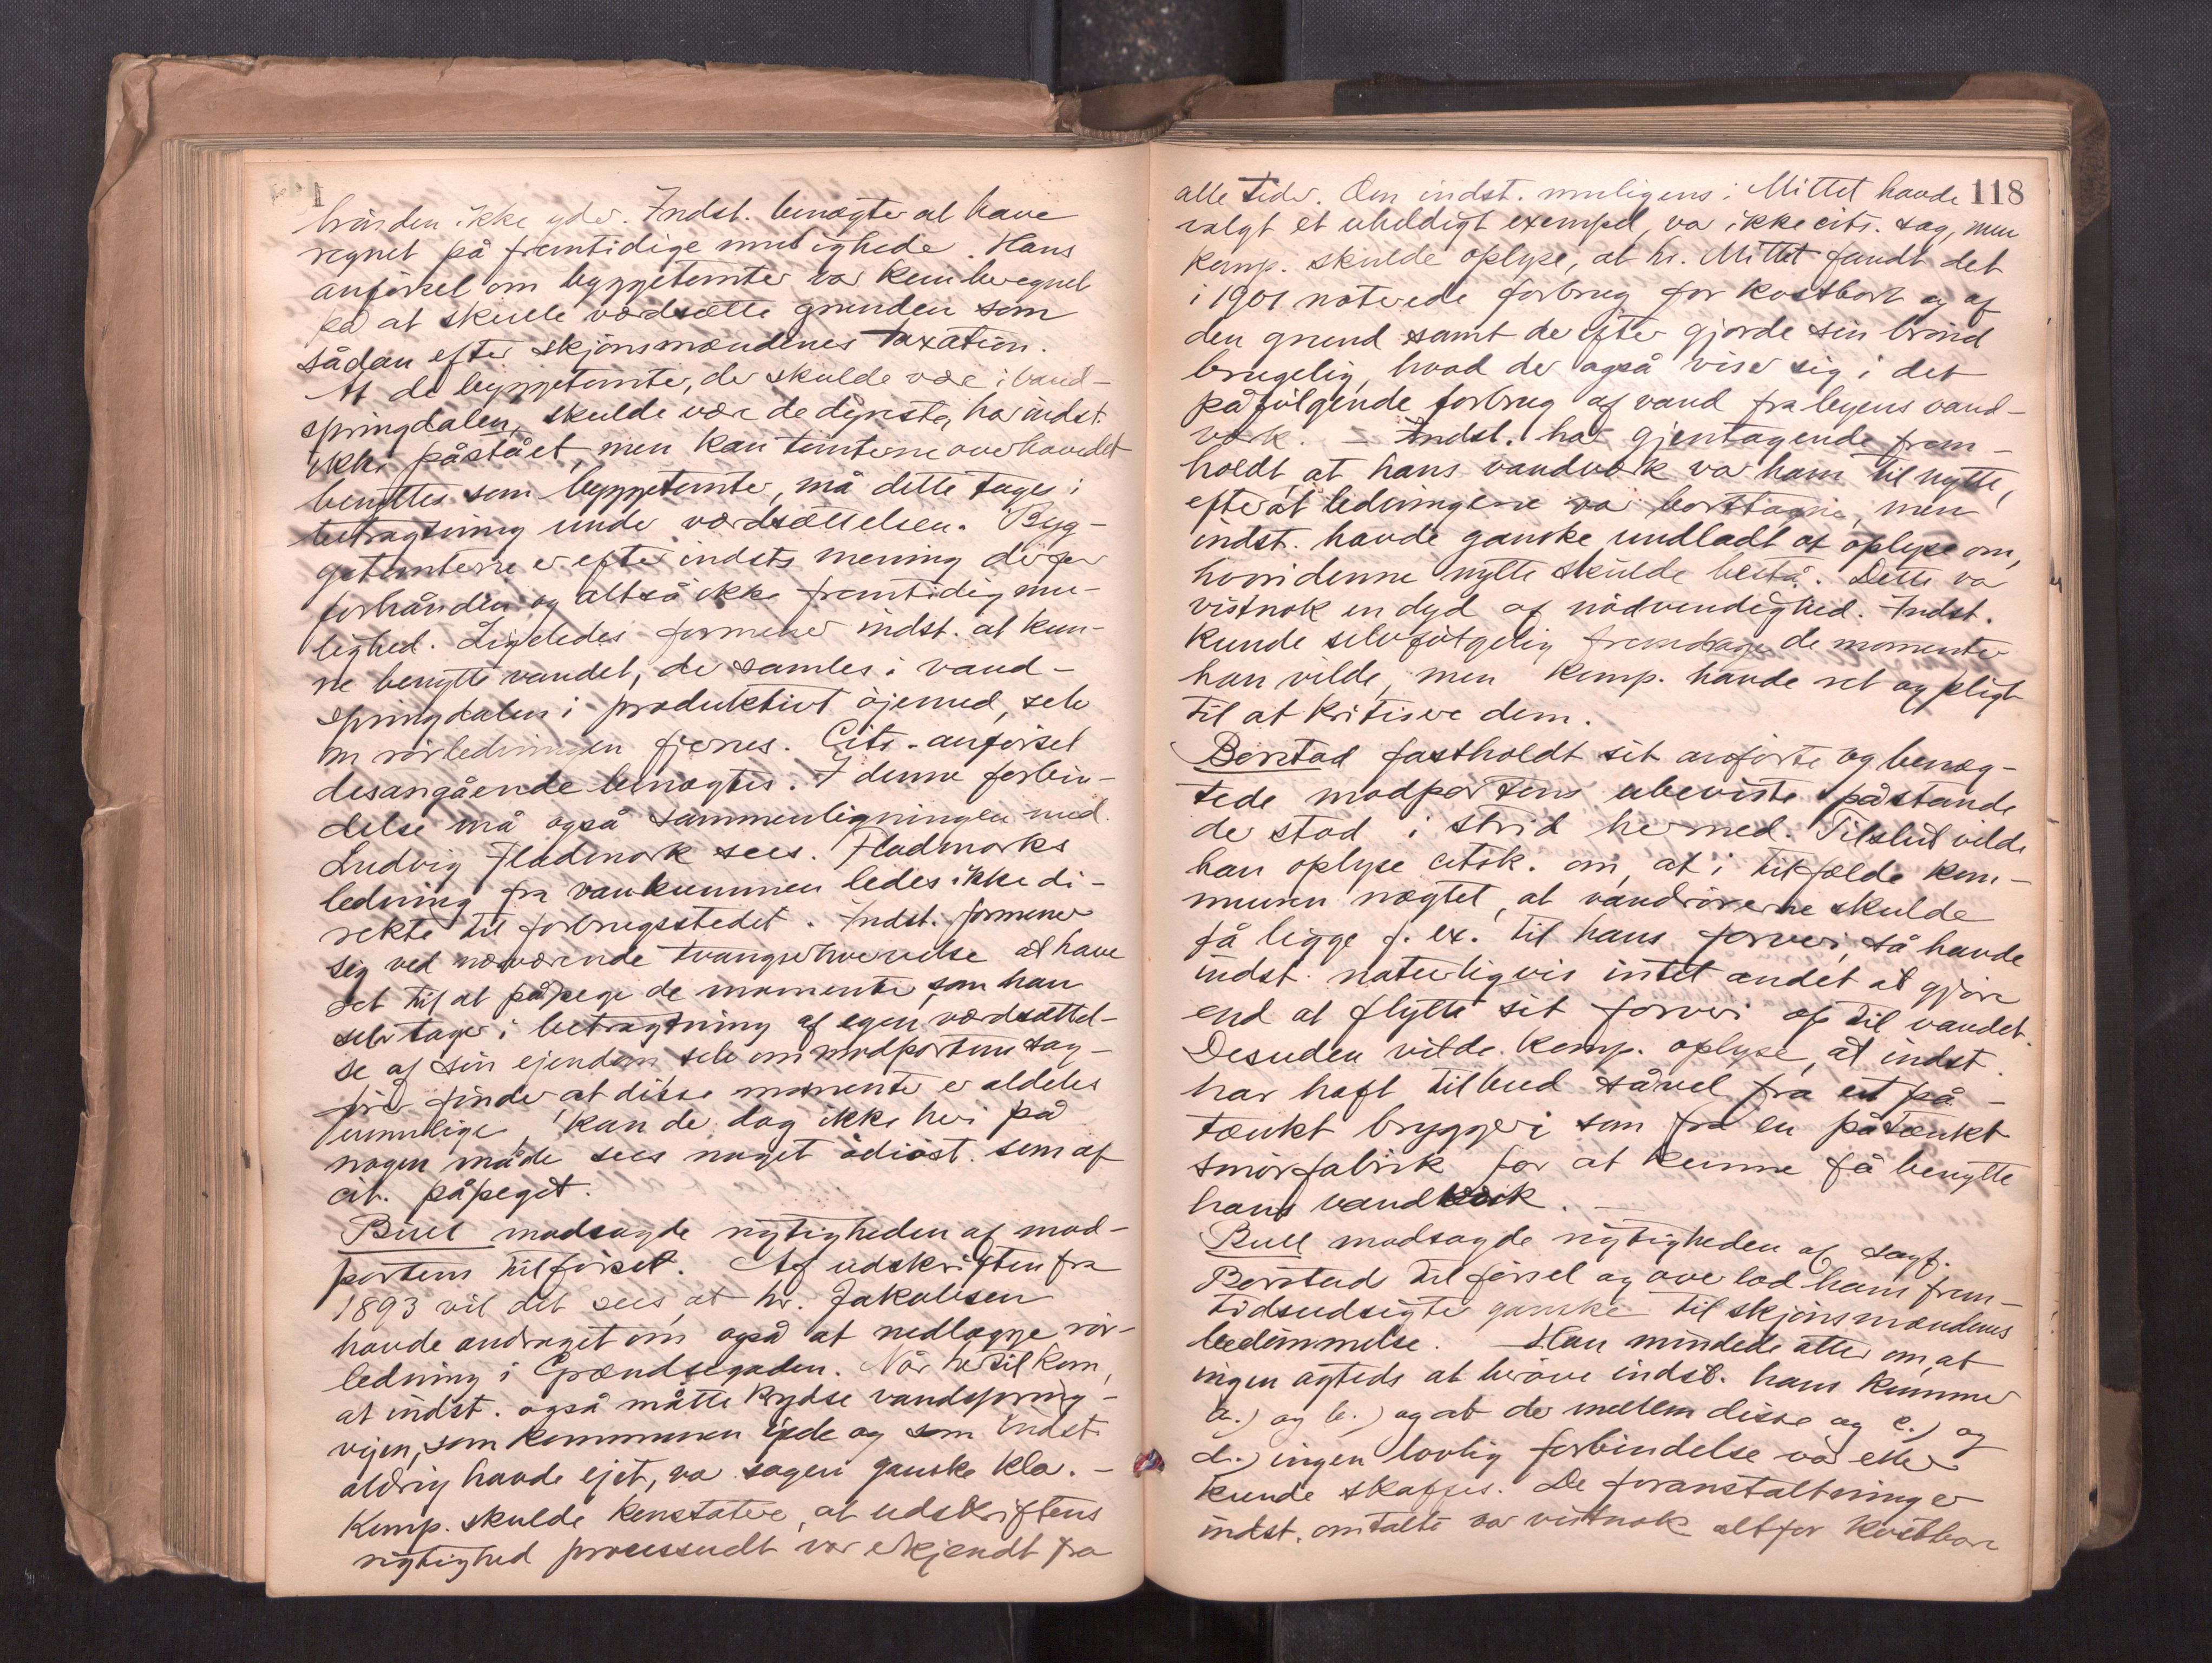 brønden ikke yder. Indst. benægter at have
regnet på fremtidige muligheder. Hans
anførsel om byggetomter var kun beregnet
på at skulle værdsætte grunden som
sådan efter skjønsmændenes taxation.
At de byggetomter, der skulde være i vand-
springdalen, skulde være de dyreste, har indst.
ikke påstået, men kan tomterne overhovedet
benyttes som byggetomter, må dette tages i
betragtning under værdsættelsen. Byg-
getomterne er efter indsts mening der for
forhånden og altså ikke fremtidig mu-
lighed. Ligeledes formener indst. at kun-
ne benytte vandet, der samles i vand-
springdalen i produktivt øjemed, selv
om rørledningen fjernes. Cits. anførsel
desangående benægtes. I denne forbin-
delse må også sammenligningen med
Ludvig Fladmark sees. Fladmarks
ledning fra vankummen ledes ikke di-
rekte til forbrugsstedet. Indst. formener
sig ved nærværende tvangserhvervelse at have
ret til at påpege de momenter, som han
selv tager i betragtning af egen værdsættel-
se af sin ejendom, selv om modpartens sag-
fører finder at disse momenter er aldeles
umulige, kan der dog ikke heri på
nogen måde sees noget odiøst som af
cit. påpeget.
Bull modsagde rigtigheden af mod-
partens tilførsel. Af udskriften fra
1893 vil det sees, at hr. Jakobsen
havde andraget om også at nedlægge rør-
ledning i Grændsegaden. Når hertil kom,
at indst. også måtte krydse vandspring-
vejen, som kommunen ejede og som indst.
aldrig havde ejet, var sagen ganske klar. –
Komp. skulde konstatere, at udskriftens
rigtighed processuelt var erkjendt fra
118
alle sider. Om indst. muligens i Mittet havde
valgt et uheldigt exempel, var ikke cits. sag, men
komp. skulde oplyse, at hr. Mittet fandt det
i 1901 noterede forbrug for kostbart og af
den grund samt derefter gjorde sin brønd
brugelig, hvad der også viser sig i det
påfølgende forbrug af vand fra byens vand-
værk. – Indst. har gjentagende frem-
holdt, at hans vandværk var ham til nytte,
efterat ledningerne var borttagne, men
indst. havde ganske undladt at oplyse om,
hvori denne nytte skulde bestå. Dette var
vistnok en dyd af nødvendighed. Indst.
kunde selvfølgelig fremdrage de momenter
han vilde, men komp. havde ret og pligt
til at kritisere dem.
Børstad fastholdt sit anførte og benæg-
tede modpartens ubeviste påstande
der stod i strid hermed. Tilslut vilde
han oplyse citsk. om, at i tilfælde kom-
munen nægtet, at vandrørerne skulde
få ligge f. ex. til hans farveri, så havde
indst. naturligvis intet andet at gjøre
end at flytte sit farveri op til vandet.
Desuden vilde komp. oplyse, at indst.
har haft tilbud såvel fra et på-
tænkt bryggeri som fra en påtænkt
smørfabrik for at kunne få benytte
hans vandværk. –
Bull modsagde rigtigheden af sagf.
Børstads tilførsel og overlod hans frem-
tidsudsigter ganske til skjønsmændenes
bedømmelse. Han mindede atter om, at
ingen agtede at berøve indst. hans kummer
a.) og b.) og at der mellem disse og c.) og
d.) ingen lovlig forbindelse var eller
kunde skaffes. De foranstaltninger
indst. omtalte var vistnok altfor kostbare